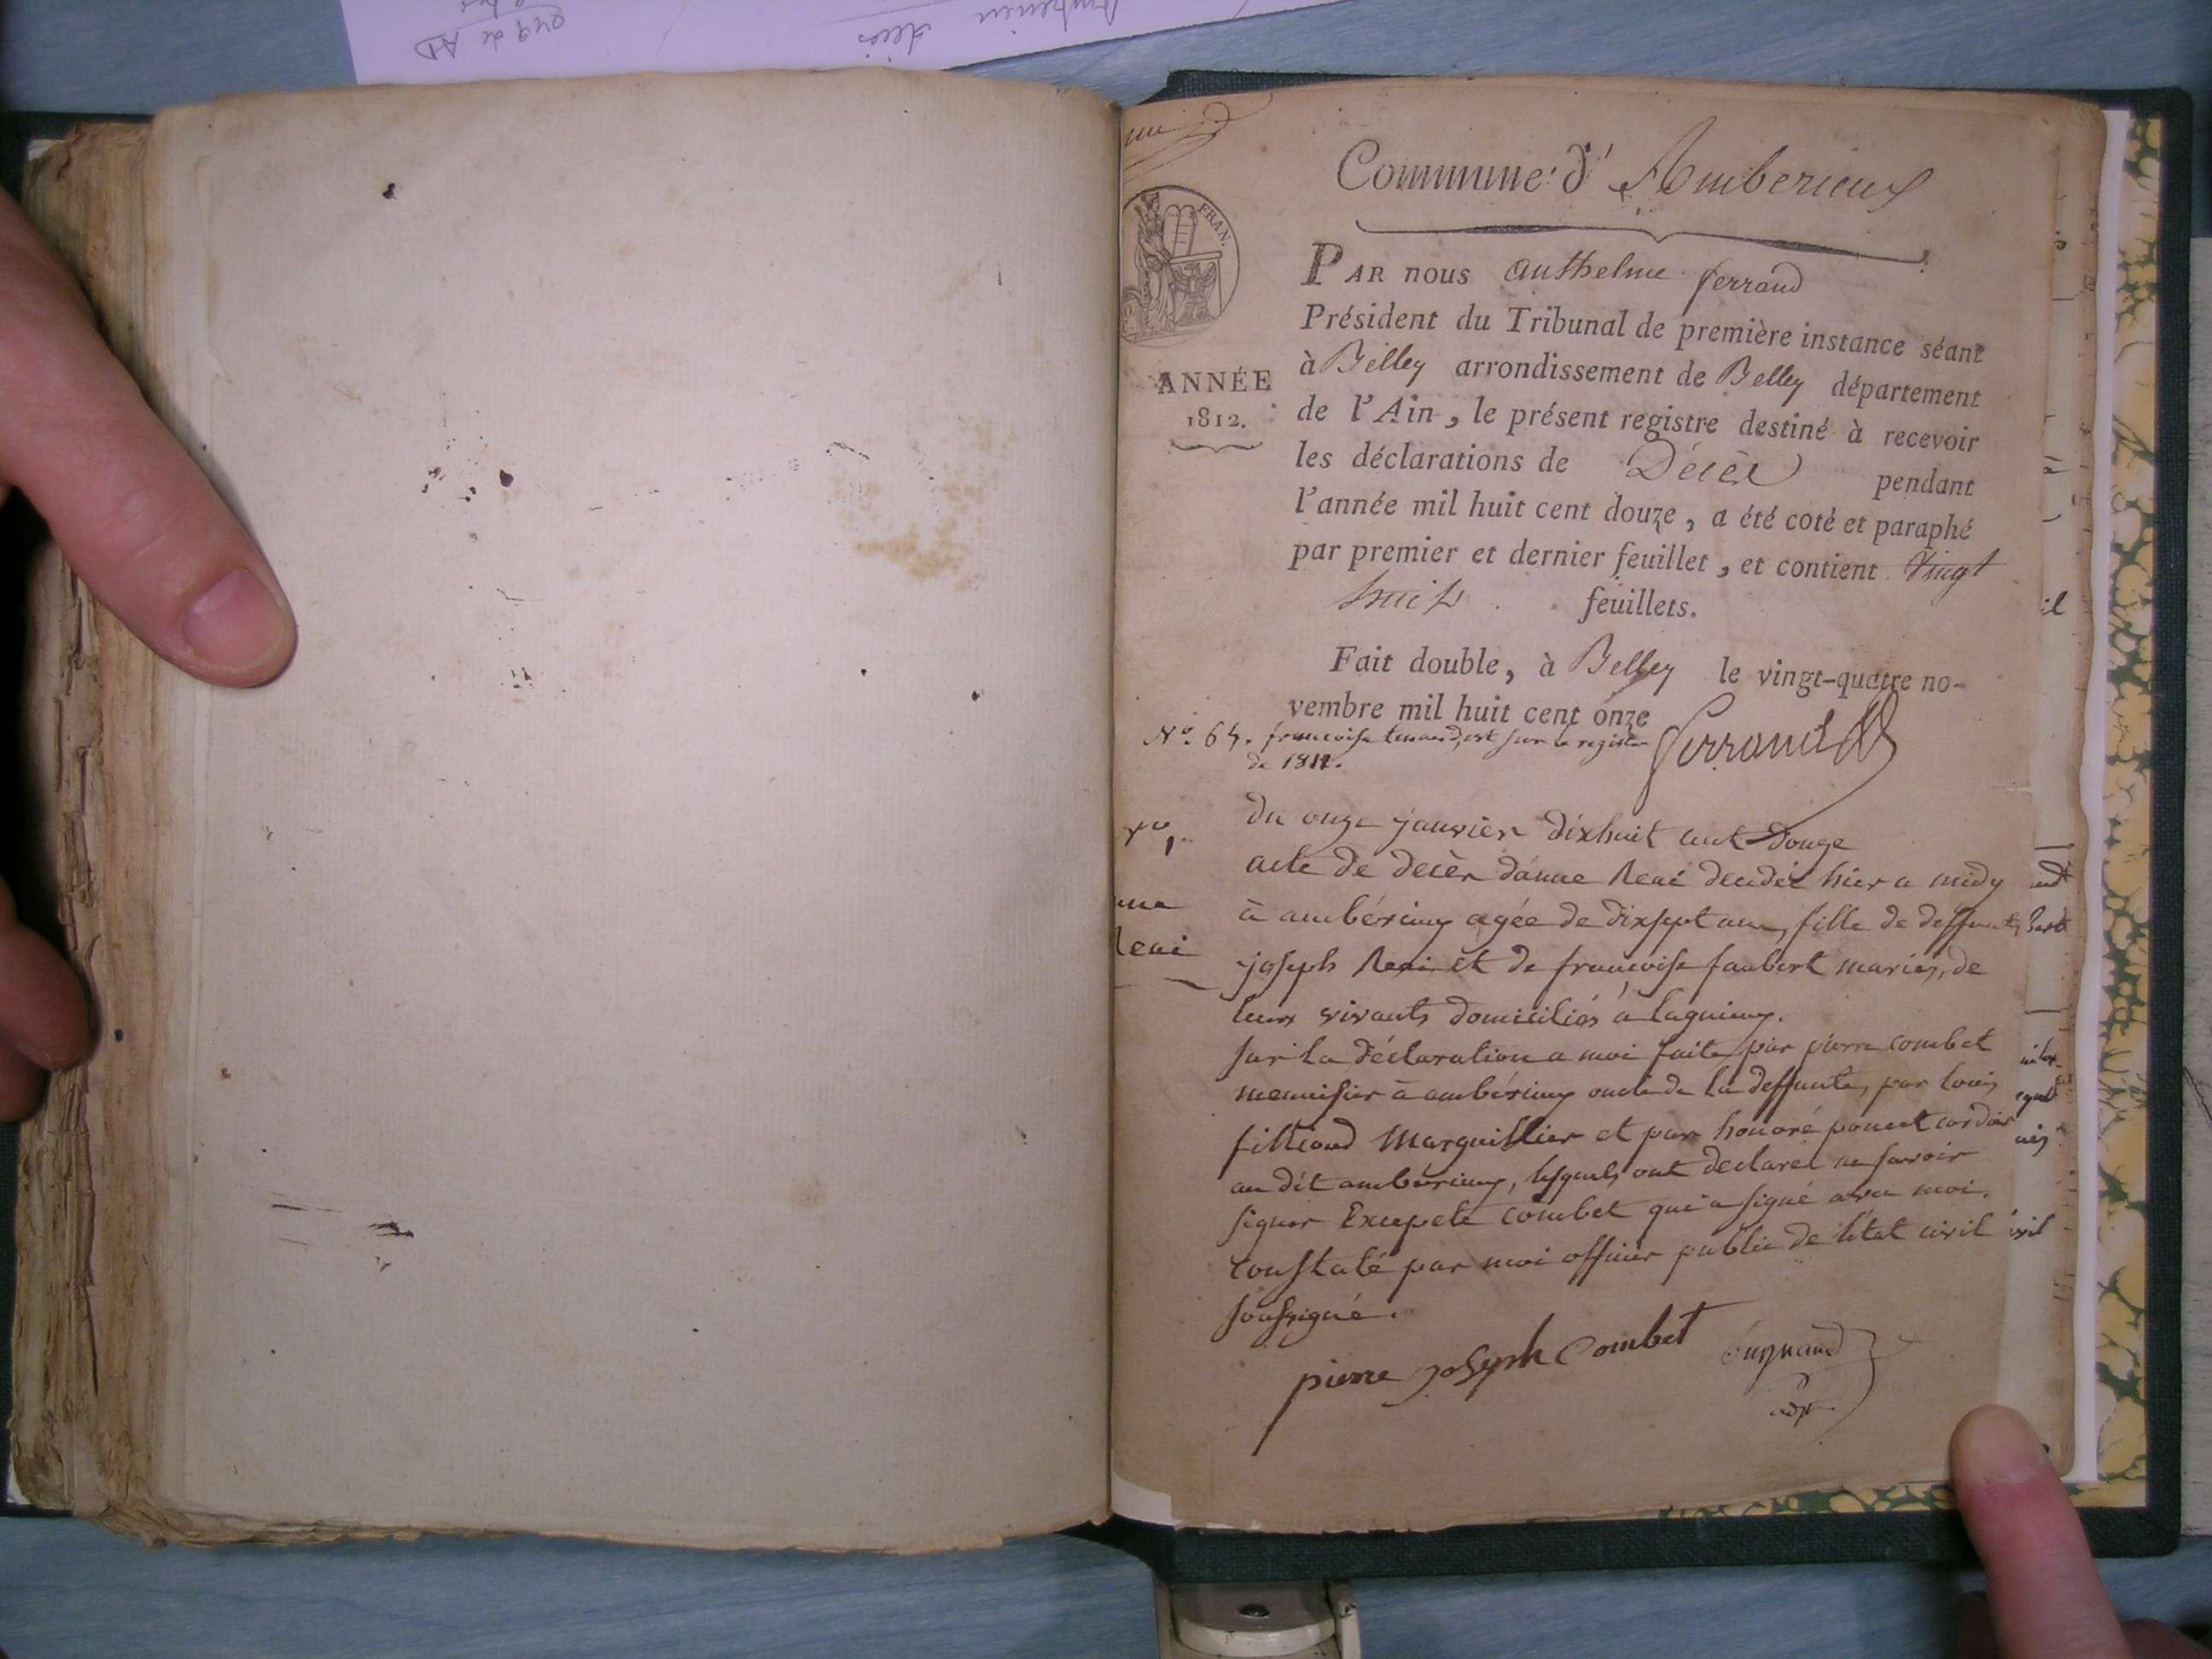 Commune d'Amberieux
FRAN.
ANNÉE
1812.
PAR nous Anthelme ferrand
Président du Tribunal de première instance séant
à Belley arrondissement de Belley département
de l'Ain, le présent registre destiné à recevoir
les déclarations de Décès pendant
l'année mil huit cent douze, a été coté et paraphé
par premier et dernier feuillet, et contient Vingt
huit feuillets.
Fait double, à Belley le vingt-quatre no-
vembre mil huit cent onze
Ferrand
N.º 64. francoise tenand, est sur le registre
de 1811.
du onze janvier dixhuit cent douze
acte de decès danne Reni decedée hier a midy
à ambérieux agée de dixsept ans, fille de deffunts
joseph Reni et de francoise faubert mariés, de
leurs vivants domiciliés à lagnieux.
sur la déclaration a moi faite par pierre combet
menuisier à ambérieux oncle de la deffunte, par louis
filliond Marguillier et par honoré poncet cordier
au dit ambérieux, lesquels ont declaré ne savoir
signer Excepté combet qui a signé avec moi.
Constaté par moi officier public de l'état civil
soussigné.
pierre joseph Combet
adjt.